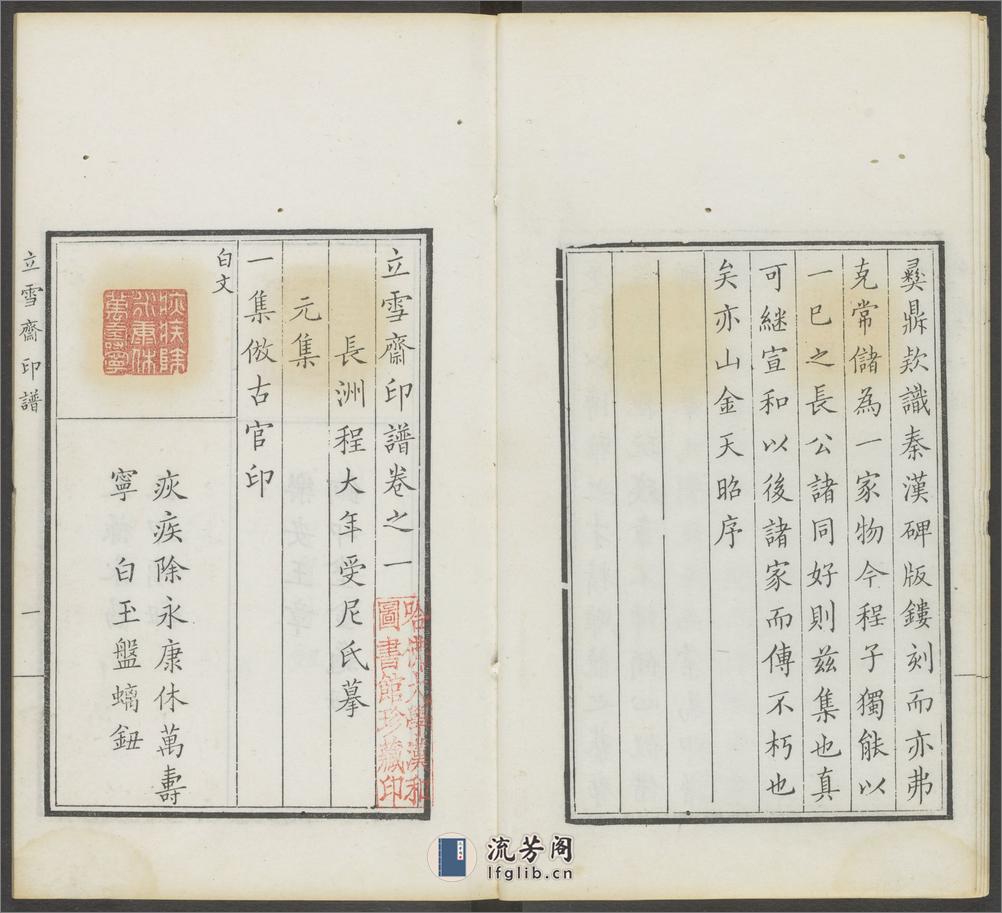 彜鼎欵識秦漢碑版鏤刻而亦弗
克常儲為一家物今程子獨能以
一已之長公諸同好則兹集也真
可継宣和以後諸家而傳不朽也
矣亦山金天昭序
立雪齋印譜卷之一
長洲程大年受尼氏摹
元集
一集倣古官印
白文
疢疾除永康休萬壽
寧白玉盤螭鈕
疢疾除
永康休
萬壽寧
立雪齋印譜
一
哈佛大學漢和
圖書館珍藏印
流芳阁
lfglib.cn